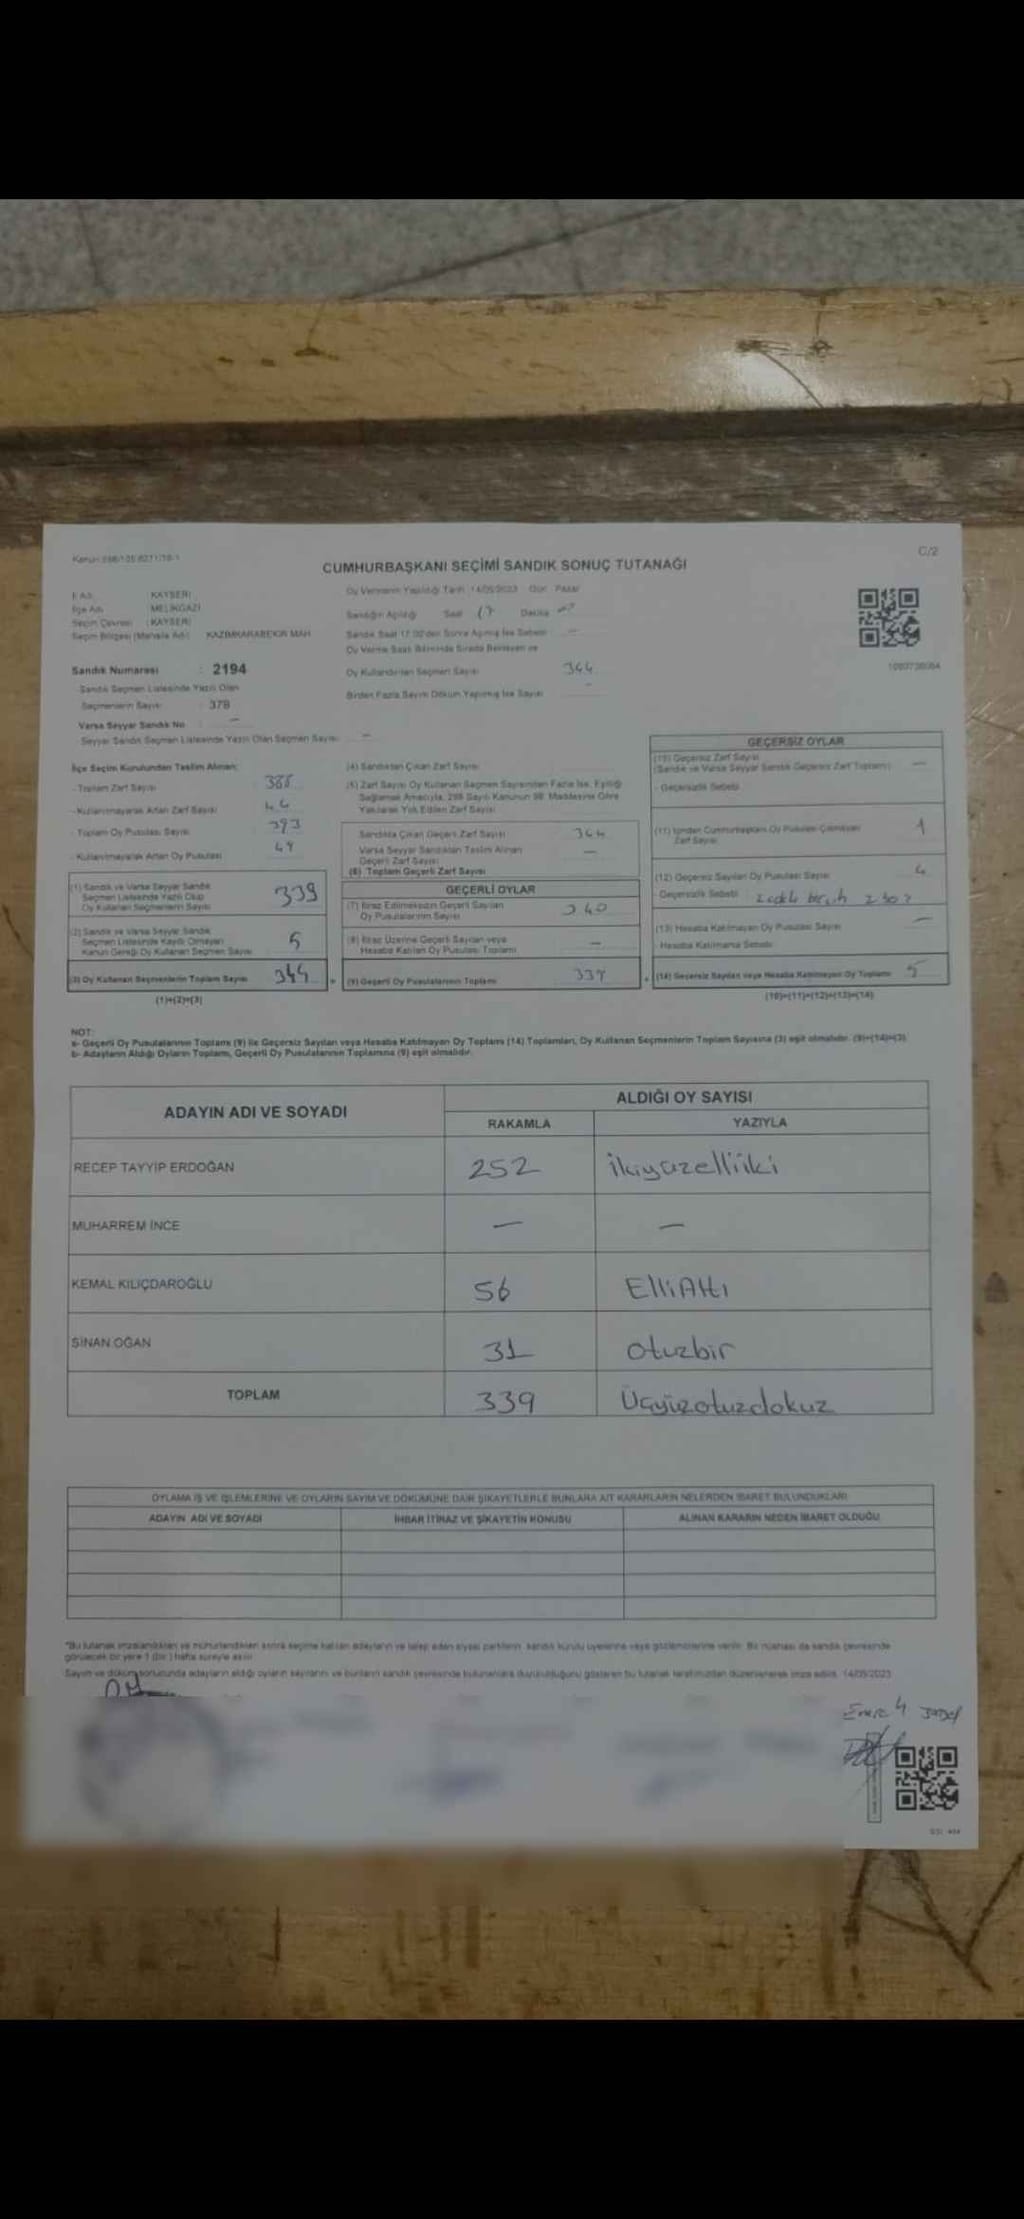 C/2
CUMHURBAŞKANI SEÇİMİ SANDIK SONUÇ TUTANAĞI
İl Adı : KAYSERİ
İlçe Adı : MELİKGAZİ
Seçim Çevresi : KAYSERİ
Seçim Bölgesi (Mahalle Adı) : KAZIMKARABEKİR MAH
Sandık Numarası : 2194
Sandık Seçmen Listesinde Yazılı Olan
Seçmenlerin Sayısı : 378
Varsa Seyyar Sandık No : —
Seyyar Sandık Seçmen Listesinde Yazılı Olan Seçmen Sayısı : —
Oy Vermenin Yapıldığı Tarih : 14/05/2023 Gün : Pazar
Sandığın Açıldığı Saat 17 Dakika
Sandık Saat 17.00'den Sonra Açılmış İse Sebebi : —
Oy Verme Saati Bitiminde Sırada Bekleyen ve
Oy Kullandırılan Seçmen Sayısı 344
Birden Fazla Sayım Döküm Yapılmış İse Sayısı -
İlçe Seçim Kurulundan Teslim Alınan:
- Toplam Zarf Sayısı 388
- Kullanılmayarak Artan Zarf Sayısı 44
- Toplam Oy Pusulası Sayısı 393
- Kullanılmayarak Artan Oy Pusulası 49
(1) Sandık ve Varsa Seyyar Sandık
Seçmen Listesinde Yazılı Olup
Oy Kullanan Seçmenlerin Sayısı 339
(2) Sandık ve Varsa Seyyar Sandık
Seçmen Listesinde Kayıtlı Olmayan
Kanun Gereği Oy Kullanan Seçmen Sayısı 5
(3) Oy Kullanan Seçmenlerin Toplam Sayısı 344
(1)+(2)=(3)
(4) Sandıktan Çıkan Zarf Sayısı
(5) Zarf Sayısı Oy Kullanan Seçmen Sayısından Fazla İse, Eşitliği
Sağlamak Amacıyla, 298 Sayılı Kanunun 98. Maddesine Göre
Yakılarak Yok Edilen Zarf Sayısı
Sandıkta Çıkan Geçerli Zarf Sayısı 344
Varsa Seyyar Sandıktan Teslim Alınan
Geçerli Zarf Sayısı —
(6) Toplam Geçerli Zarf Sayısı
GEÇERLİ OYLAR
(7) İtiraz Edilmeksizin Geçerli Sayılan
Oy Pusulalarının Sayısı 340
(8) İtiraz Üzerine Geçerli Sayılan veya
Hesaba Katılan Oy Pusulası Toplamı —
(9) Geçerli Oy Pusulalarının Toplamı 339
GEÇERSİZ OYLAR
(10) Geçersiz Zarf Sayısı
(Sandık ve Varsa Seyyar Sandık Geçersiz Zarf Toplamı) —
- Geçersizlik Sebebi
(11) İçinden Cumhurbaşkanı Oy Pusulası Çıkmayan
Zarf Sayısı 1
(12) Geçersiz Sayılan Oy Pusulası Sayısı 4
- Geçersizlik Sebebi
(13) Hesaba Katılmayan Oy Pusulası Sayısı —
- Hesaba Katılmama Sebebi
(14) Geçersiz Sayılan veya Hesaba Katılmayan Oy Toplamı 5
(10)+(11)+(12)+(13)=(14)
NOT:
a- Geçerli Oy Pusulalarının Toplamı (9) ile Geçersiz Sayılan veya Hesaba Katılmayan Oy Toplamı (14) Toplamları, Oy Kullanan Seçmenlerin Toplam Sayısına (3) eşit olmalıdır. (9)+(14)=(3)
b- Adayların Aldığı Oyların Toplamı, Geçerli Oy Pusulalarının Toplamına (9) eşit olmalıdır.
ADAYIN ADI VE SOYADI ALDIĞI OY SAYISI
RAKAMLA YAZIYLA
RECEP TAYYİP ERDOĞAN 252 ikiyüzelliiki
MUHARREM İNCE — —
KEMAL KILIÇDAROĞLU 56 ElliAltı
SİNAN OĞAN 31 otuzbir
TOPLAM 339 Üçyüzotuzdokuz
OYLAMA İŞ VE İŞLEMLERİNE VE OYLARIN SAYIM VE DÖKÜMÜNE DAİR ŞİKAYETLERLE BUNLARA AİT KARARLARIN NELERDEN İBARET BULUNDUKLARI
ADAYIN ADI VE SOYADI İHBAR İTİRAZ VE ŞİKAYETİN KONUSU ALINAN KARARIN NEDEN İBARET OLDUĞU
*Bu tutanak imzalandıktan ve mühürlendikten sonra seçime katılan adayların ve talep eden siyasi partilerin, sandık kurulu üyelerine veya gözlemcilerine verilir. Bir nüshası da sandık çevresinde
görülecek bir yere 1 (bir) hafta süreyle asılır.
Sayım ve döküm sonucunda adayların aldığı oyların sayılarını ve bunların sandık çevresinde bulunanlara duyurulduğunu gösteren bu tutanak tarafımızdan düzenlenerek imza edildi. 14/05/2023